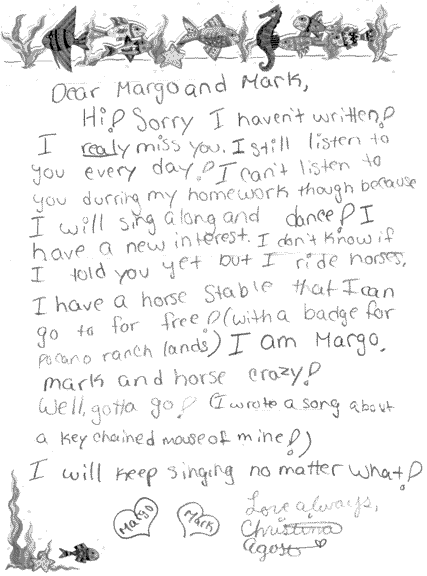 Dear Margo and Mark,
Hi! Sorry I haven't written!
I realy miss you. I still listen to
you every day! I can't listen to
you durring my homework though because
I will sing along and dance! I
have a new interest. I don't know if
I told you yet but I ride horses.
I have a horse stable that I can
go to for free! (with a badge for
pocano ranch lands) I am Margo,
mark and horse crazy!
Well, gotta go! (I wrote a song about
a key chained mouse of mine!)
I will keep singing no matter what!
Love always,
Margo Mark Christina